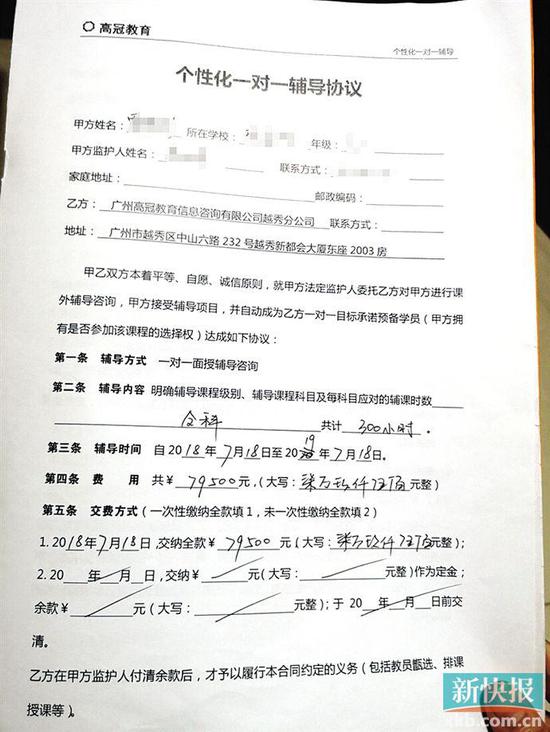 高冠教育
个性化一对一辅导
个性化一对一辅导协议
甲方姓名： 所在学校： 年级：
甲方监护人姓名： 联系方式：
家庭地址： 邮政编码：
乙方： 广州高冠教育信息咨询有限公司越秀分公司 联系方式：
地址： 广州市越秀区中山六路 232 号越秀新都会大厦东座 2003 房
甲乙双方本着平等、自愿、诚信原则，就甲方法定监护人委托乙方对甲方进行课
外辅导咨询，甲方接受辅导项目，并自动成为乙方一对一目标承诺预备学员（甲方拥
有是否参加该课程的选择权）达成如下协议：
第一条 辅导方式 一对一面授辅导咨询
第二条 辅导内容 明确辅导课程级别、辅导课程科目及每科目应对的辅课时数
全科 共计 300小时。
第三条 辅导时间 自 2018 年 7 月 18 日至 2019 年 7 月 18 日。
第四条 费 用 共￥ 79500 元，（大写：柒万玖仟伍佰 元整）
第五条 交费方式（一次性缴纳全款填 1，未一次性缴纳全款填 2）
1. 2018 年 7 月 18 日，交纳全款￥ 79500 元（大写：柒万玖仟伍佰 元整）；
2. 20 年 月 日，交纳￥ 元（大写： 元整）作为定金；
余款￥ 元（大写： 元整）；于 20 年 月 日前交
清。
乙方在甲方监护人付清余款后，才予以履行本合同约定的义务（包括教员甄选、排课
授课等）。
新快报
xkb.com.cn